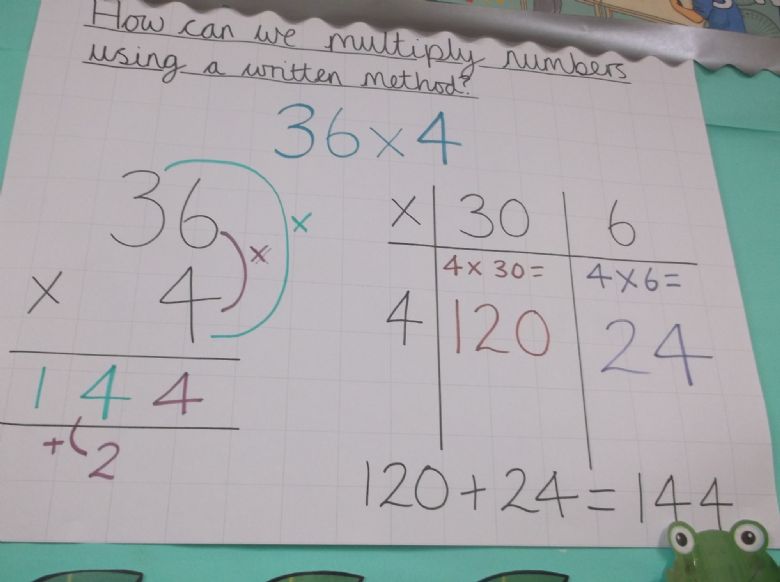 How can we multiply numbers
using a written method?
36×4
36
× 4
144
+2
×
×
× 30 6
4×30= 4×6=
4 120 24
120+24=144